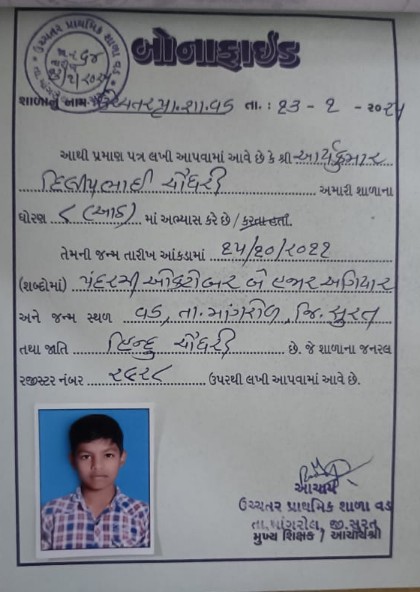 ઉચ્ચતર પ્રાથમિક શાળા વડ
બોનાફાઈડ
શાળાનું નામ ઉચ્ચતર પ્રા.શા.વડ તા. : ૨૩ - ૧ - ૨૦૨૫
આથી પ્રમાણ પત્ર લખી આપવામાં આવે છે કે શ્રી આર્યકુમાર
દિલીપભાઈ ચૌધરી અમારી શાળાના
ધોરણ ૮ (આઠ) માં અભ્યાસ કરે છે / કરતા હતા.
તેમની જન્મ તારીખ આંકડામાં ૧૫/૧૦/૨૦૧૧
(શબ્દોમાં) પંદરમી ઓક્ટોબર બે હજાર અગિયાર
અને જન્મ સ્થળ વડ, તા. માંગરોળ, જિ. સુરત
તથા જાતિ હિન્દુ ચૌધરી છે. જે શાળાના જનરલ
રજીસ્ટર નંબર ઉપરથી લખી આપવામાં આવે છે.
આચાર્ય
ઉચ્ચતર પ્રાથમિક શાળા વડ
તા.માંગરોલ, જી.સુરત
મુખ્ય શિક્ષક / આચાર્યશ્રી